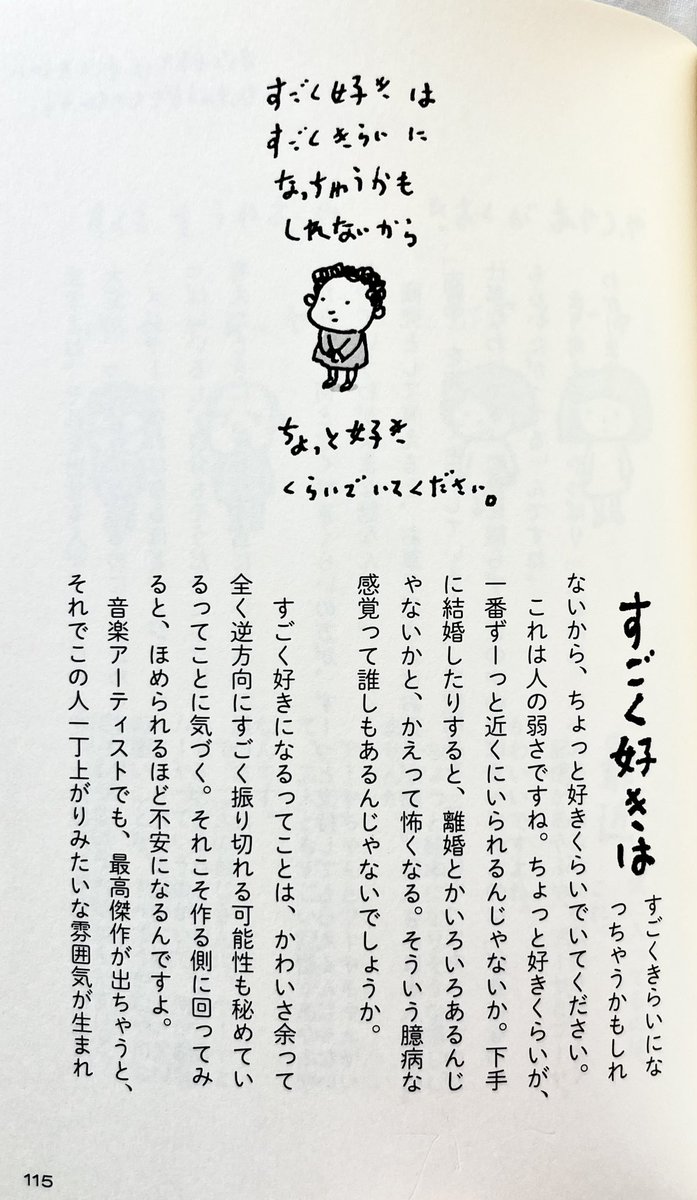 すごく好きは
すごくきらいに
なっちゃうかも
しれないから
ちょっと好き
くらいでいてください。
すごく好きは
すごくきらいにな
っちゃうかもしれ
ないから、ちょっと好きくらいでいてください。
これは人の弱さですね。ちょっと好きくらいが、
一番ずーっと近くにいられるんじゃないか。下手
に結婚したりすると、離婚とかいろいろあるんじ
ゃないかと、かえって怖くなる。そういう臆病な
感覚って誰しもあるんじゃないでしょうか。
すごく好きになるってことは、かわいさ余って
全く逆方向にすごく振り切れる可能性も秘めてい
るってことに気づく。それこそ作る側に回ってみ
ると、ほめられるほど不安になるんですよ。
音楽アーティストでも、最高傑作が出ちゃうと、
それでこの人一丁上がりみたいな雰囲気が生まれ
115